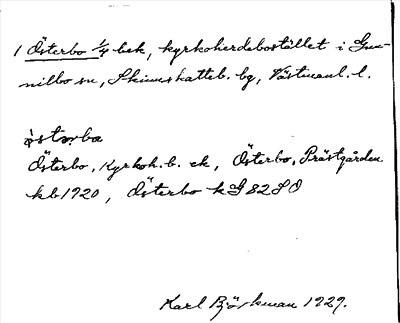 1 Österbo 1/4 bek, kyrkoherdebostället i Gun-
nilbo sn, Skinnskatteb. bg, Västmanl. l.
östərbω
Österbo, Kyrkoh.b. ek, Österbo, Prästgården
kb 1920, Österbo k G 82 S O
Karl Björkman 1929.